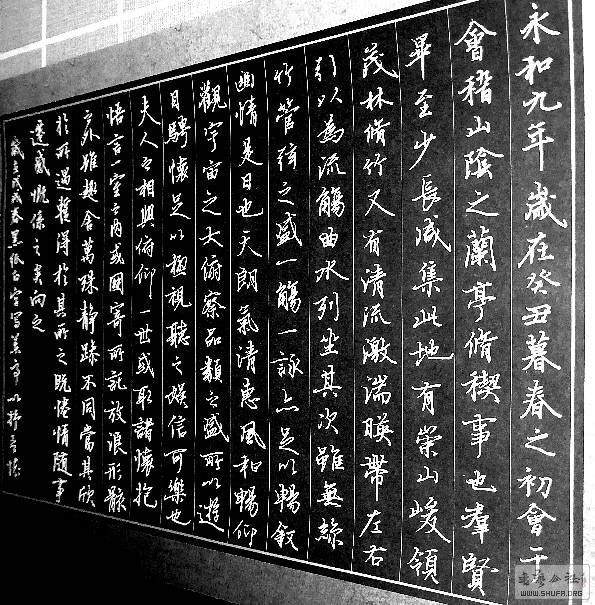 永和九年歲在癸丑暮春之初會于
會稽山陰之蘭亭脩稧事也羣賢
畢至少長咸集此地有崇山峻領
茂林脩竹又有清流激湍暎帶左右
引以為流觴曲水列坐其次雖無絲
竹管弦之盛一觴一詠亦足以暢敘
幽情是日也天朗氣清惠風和暢仰
觀宇宙之大俯察品類之盛所以遊
目騁懷足以極視聽之娛信可樂也
夫人之相與俯仰一世或取諸懷抱
悟言一室之內或因寄所託放浪形骸
之外雖趣舍萬殊靜躁不同當其欣
於所遇暫得於其所之既倦情隨事
遷感慨係之矣向之
春黑紙白字寫蘭亭以抒吾懷
WWW.SHUFA.ORG